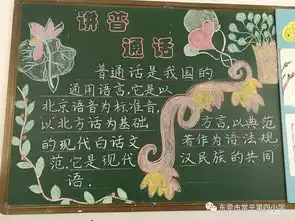 讲普
通话
普通话是我国的
通用语言,它是以
北京语音为标准音,
以北方话为基础 方言,以典范
的现代白话文 著作为语法规
范.它是现代 汉民族的共同
语.
东莞市常平第四小学